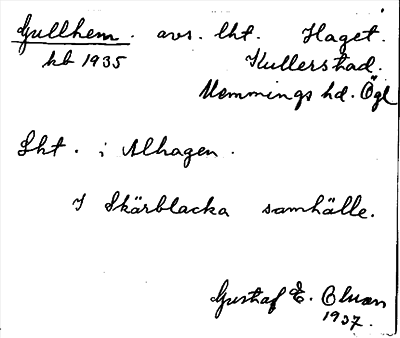 Gullhem. avs. lht. Haget.
kb 1935 Kullerstad.
Memmings hd. Ögl
Lht. i Alhagen.
I Skärblacka samhälle.
Gustaf E. Olvan
1937.